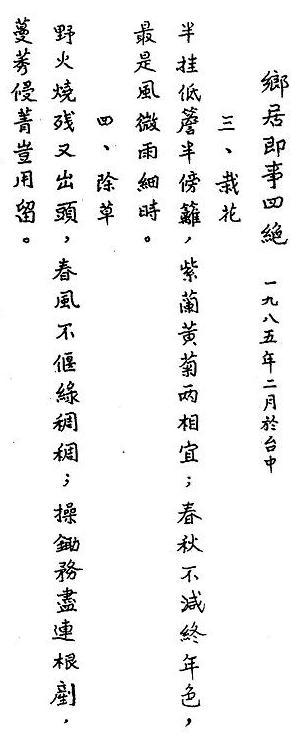 鄉居即事四絕 一九八五年二月於台中
三、栽花
半挂低簷半傍籬，紫蘭黃菊两相宜；春秋不減終年色，
最是風微雨細時。
四、除草
野火燒残又出頭，春風不偃綠稠稠；操鋤務盡連根劚，
蔓莠侵菁豈用留。